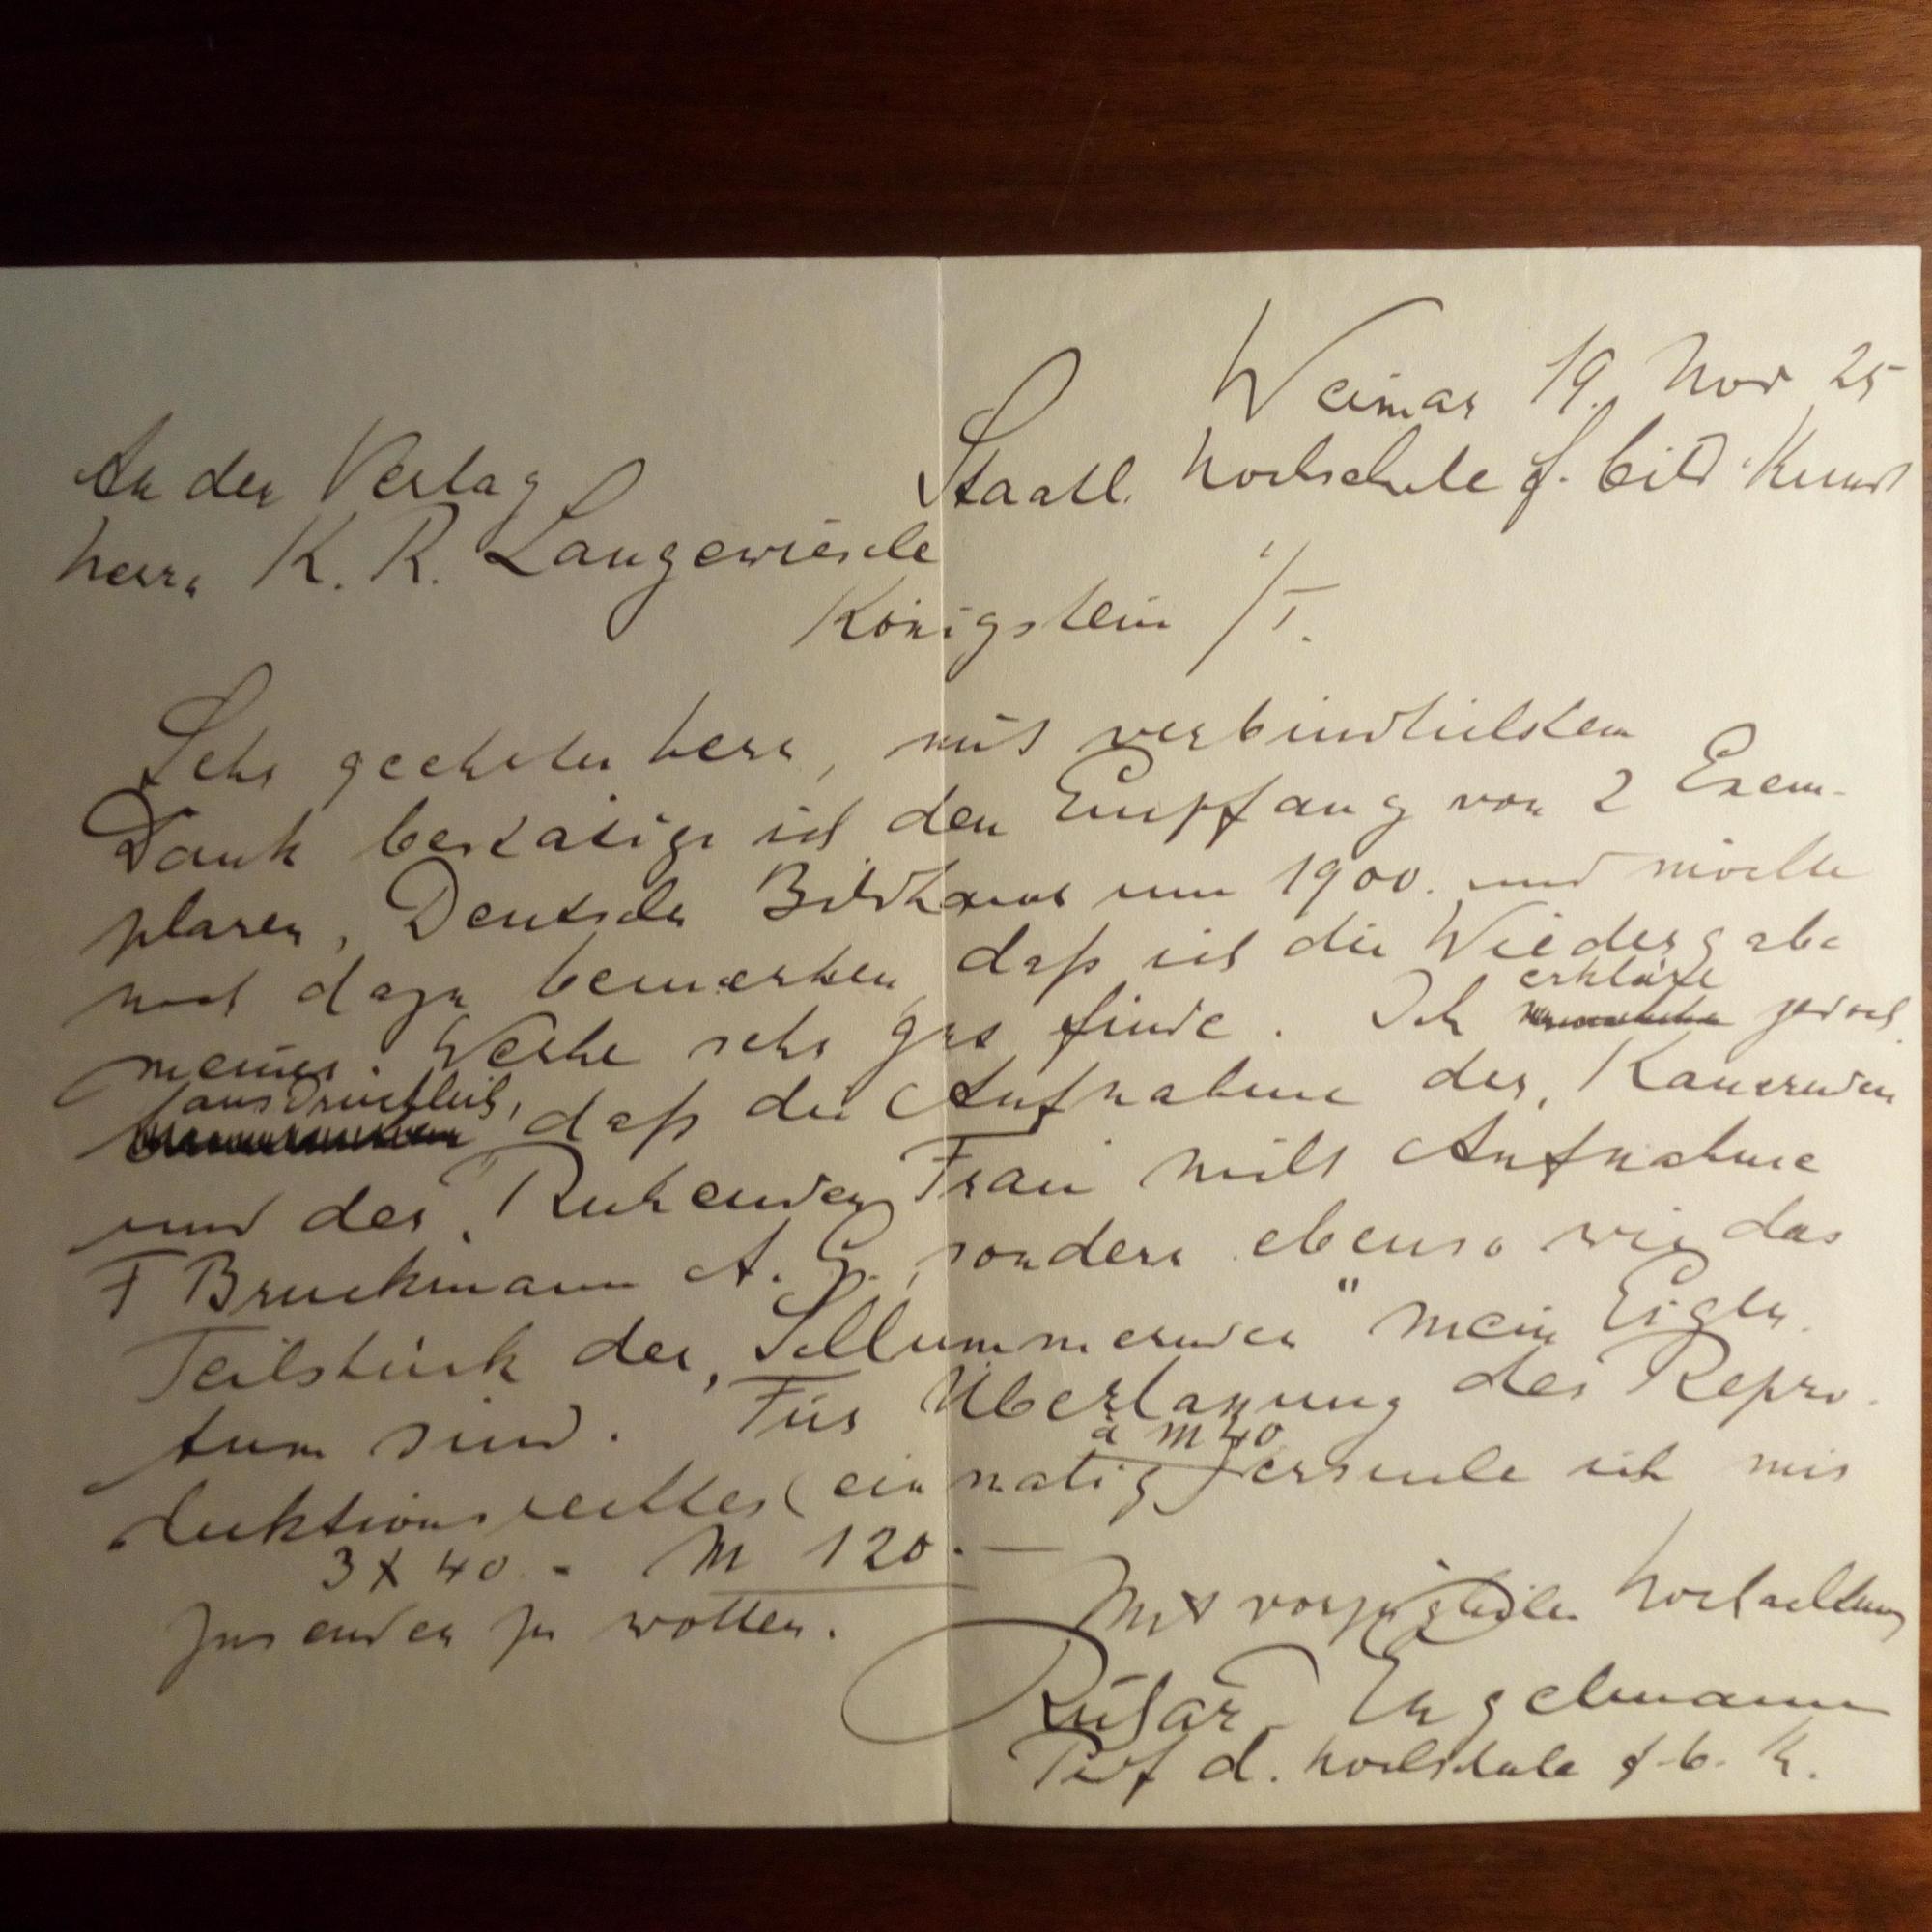 Weimar 19. Nov 25
Staatl. Hochschule f. bild. Kunst
An den Verlag
Herrn K. R. Langewiesche
Königstein i/T.
Sehr geehrter Herr, mit verbindlichstem
Dank bestätige ich den Empfang von 2 Exem-
plaren, Deutsche Bildhauer um 1900. und möchte
noch dazu bemerken, daß ich die Wiedergabe
meiner Werke sehr gut finde. Ich erkläre jedoch
ausdrücklich, daß die Aufnahme der „Kauernden
und der „Ruhenden Frau nicht Aufnahme
F Bruckmann A. G., sondern ebenso wie das
Teilstück der „Schlummernden" mein Eigen-
tum sind. Für Überlassung des Repro-
duktionsrechtes (einmalig à M 40) ersuche ich mir
3 x 40. - M 120.—
zusenden zu wollen.
Mit vorzüglicher Hochachtung
Richard Engelmann
Prof d. Hochschule f. b. K.